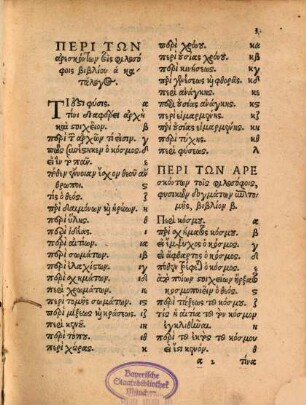 ΠΕΡΙ ΤΩΝ
ἀρεσκόντων τοῖς φιλοσό
φοις βιβλίου α κα
τάλογος
ΤΙ ἐστι φύσις. α
τίνι διαφέρει ἀρχὴ
καὶ στοιχεῖον. β
περὶ τ̃ ἀρχῶν τί εἰσιν. γ
πῶς συνέστηκεν ὁ κόσμος. δ
εἰ ἓν τ̀ πᾶν. ε
πόθεν ἔννοιαν ἔχον θεοῦ ἄν
θρωποι. ϛ
τίς ὁ θεός. ζ
περὶ δαιμόνων κὶ ἡρώων. η
περὶ ὕλης. θ
περὶ ἰδέας. ι
περὶ αἰτίων. ια
περὶ σωμάτων. ιβ
περὶ ἐλαχίστων. ιγ
περὶ σχημάτων. ιδ
περὶ χρωμάτων. ιε
περὶ τομῆς σωμάτων. ιϛ
περὶ μίξεως κὶ κράσεως. ιζ
περὶ κενοῦ. ιη
περὶ τόπου. ιθ
περὶ χώρας. κ
περὶ χρόνου. κα
περὶ οὐσίας χρόνου. κβ
περὶ κινήσεως. κγ
περὶ γενέσεως κὶ φθορᾶς. κδ
περὶ ἀνάγκης. κε
περὶ οὐσίας ἀνάγκης. κϛ
περὶ εἱμαρμένης. κζ
περὶ οὐσίας εἱμαρμένης. κη
περὶ τύχης. κθ
περὶ φύσεως. λ
ΠΕΡΙ ΤΩΝ ΑΡΕ
σκόντων τοῖς φιλοσόφοις,
φυσικῶν δογμάτων ἐπιτο
μῆς, βιβλίον β.
Περὶ κόσμου. α
περὶ σχήματος κόσμου. β
εἰ ἔμψυχος ὁ κόσμος. γ
εἰ ἄφθαρτος ὁ κόσμος. δ
πόθεν τρέφεται ὁ κόσμος. ε
ἀπὸ ποίου στοιχείου ἤρξατο
κοσμοποιεῖν ὁ θεός. ϛ
περὶ τάξεως τοῦ κόσμου. ζ
τίς ἡ αἰτία τοῦ τὸν κόσμον
ἐγκλιθῆναι. η
περὶ τοῦ ἐκτὸς τοῦ κόσμου
εἰ ἔστι κενόν. θ
a 2 τίνα
Bayerische
Staatsbibliothek
München